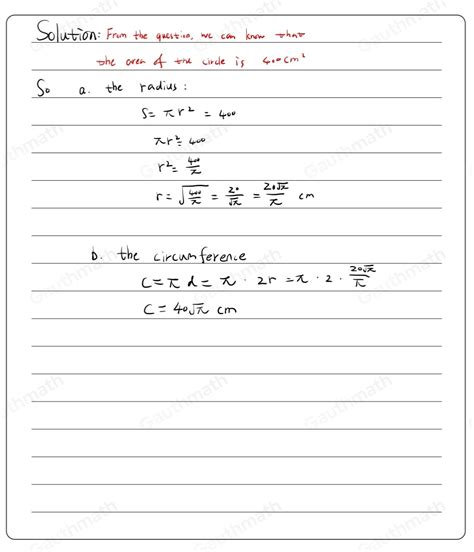 Solution: From the question, we can know that
the area of the circle is 400cm²
So a. the radius:
S = πr² = 400
πr² = 400
r² = 400/π
r = √(400/π) = 20/√π = 20√π/π cm
b. the circumference
C = π d = π · 2r = π · 2 · 20√π/π
C = 40√π cm
Gauthmath